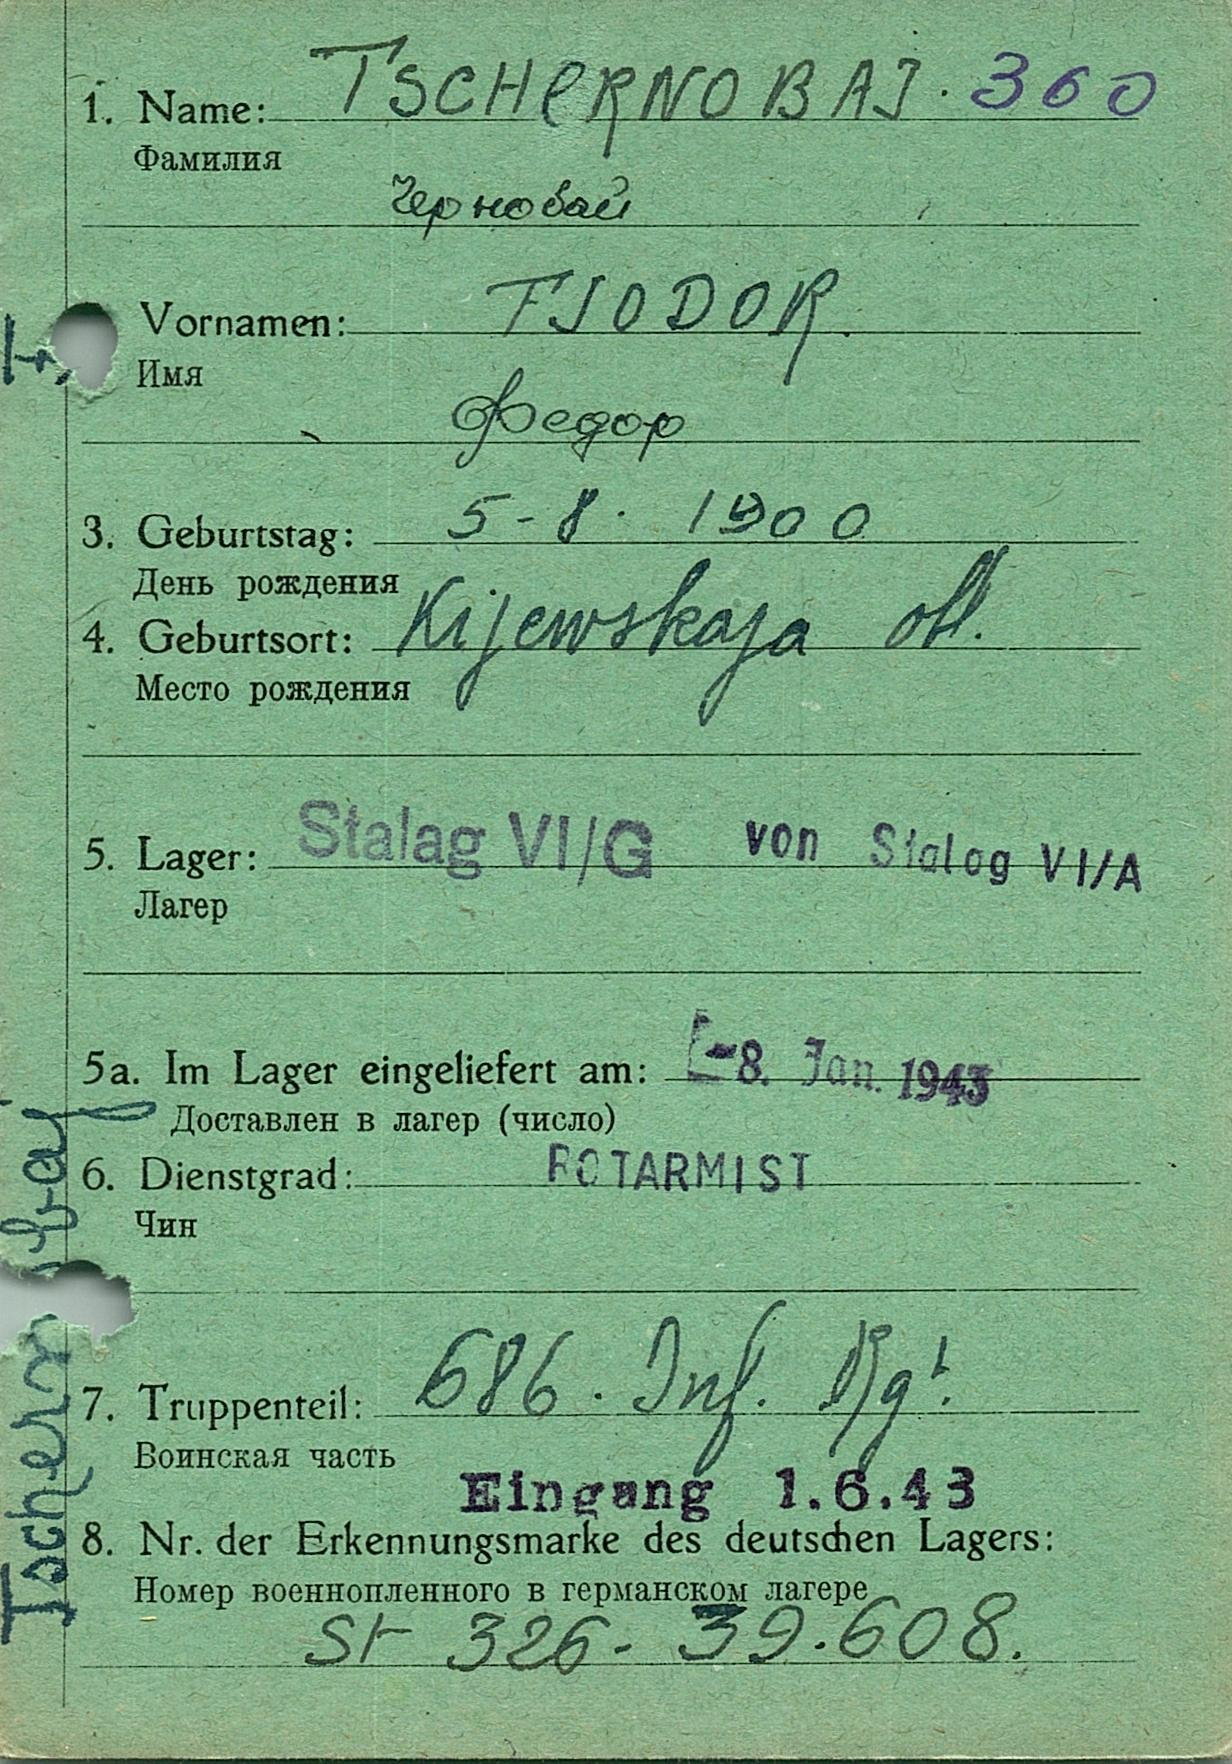 1. Name: TSCHERNOBAJ. 360
Фамилия
Чернобай
Vornamen: FJODOR.
Имя
Федор
3. Geburtstag: 5-8. 1900
День рождения
4. Geburtsort: Kijewskaja obl.
Место рождения
5. Lager: Stalag VI/G von Stalag VI/A
Лагер
5a. Im Lager eingeliefert am: -8. Jan. 1943
Доставлен в лагер (число)
6. Dienstgrad: ROTARMIST
Чин
7. Truppenteil: 686. Inf. Rgt.
Воинская часть
Eingang 1.6.43
8. Nr. der Erkennungsmarke des deutschen Lagers:
Номер военнопленного в германском лагере
St 326- 39.608.